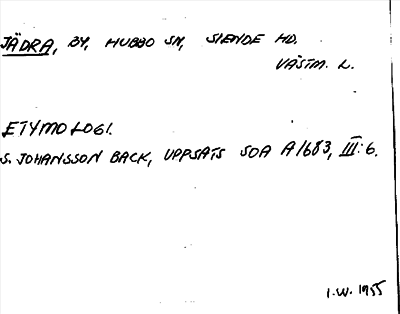 JÄDRA, BY, HUBBO SN, SIENDE HD.
VÄSTM. L.
ETYMOLOGI.
S. JOHANSSON BACK, UPPSATS SOA A1683, III:6.
I.W. 1955